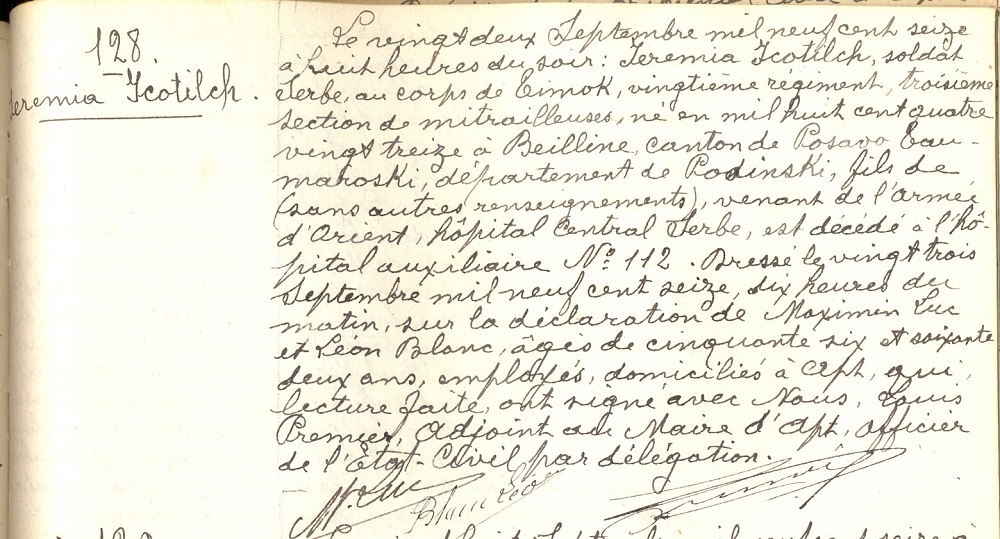 128.
Jeremia Icotilch.
Le vingt deux Septembre mil neuf cent seize
à huit heures du soir : Jeremia Icotilch, soldat
Serbe, au corps de Timok, vingtième régiment, troisième
section de mitrailleuses, né en mil huit cent quatre
vingt treize à Beilline, canton de Posavo Tau-
maroski, département de Podinski, fils de
(sans autres renseignements), venant de l'Armée
d'Orient, hôpital Central Serbe, est décédé à l'hô-
pital auxiliaire Nº 112. Dressé le vingt trois
Septembre mil neuf cent seize, dix heures du
matin, sur la déclaration de Maximin Luc
et Léon Blanc, âgés de cinquante six et soixante
deux ans, employés, domiciliés à Apt, qui,
lecture faite, ont signé avec Nous, Louis
Premier, Adjoint au Maire d'Apt, Officier
de l'Etat-Civil par délégation.
M. Luc
Blanc Léon